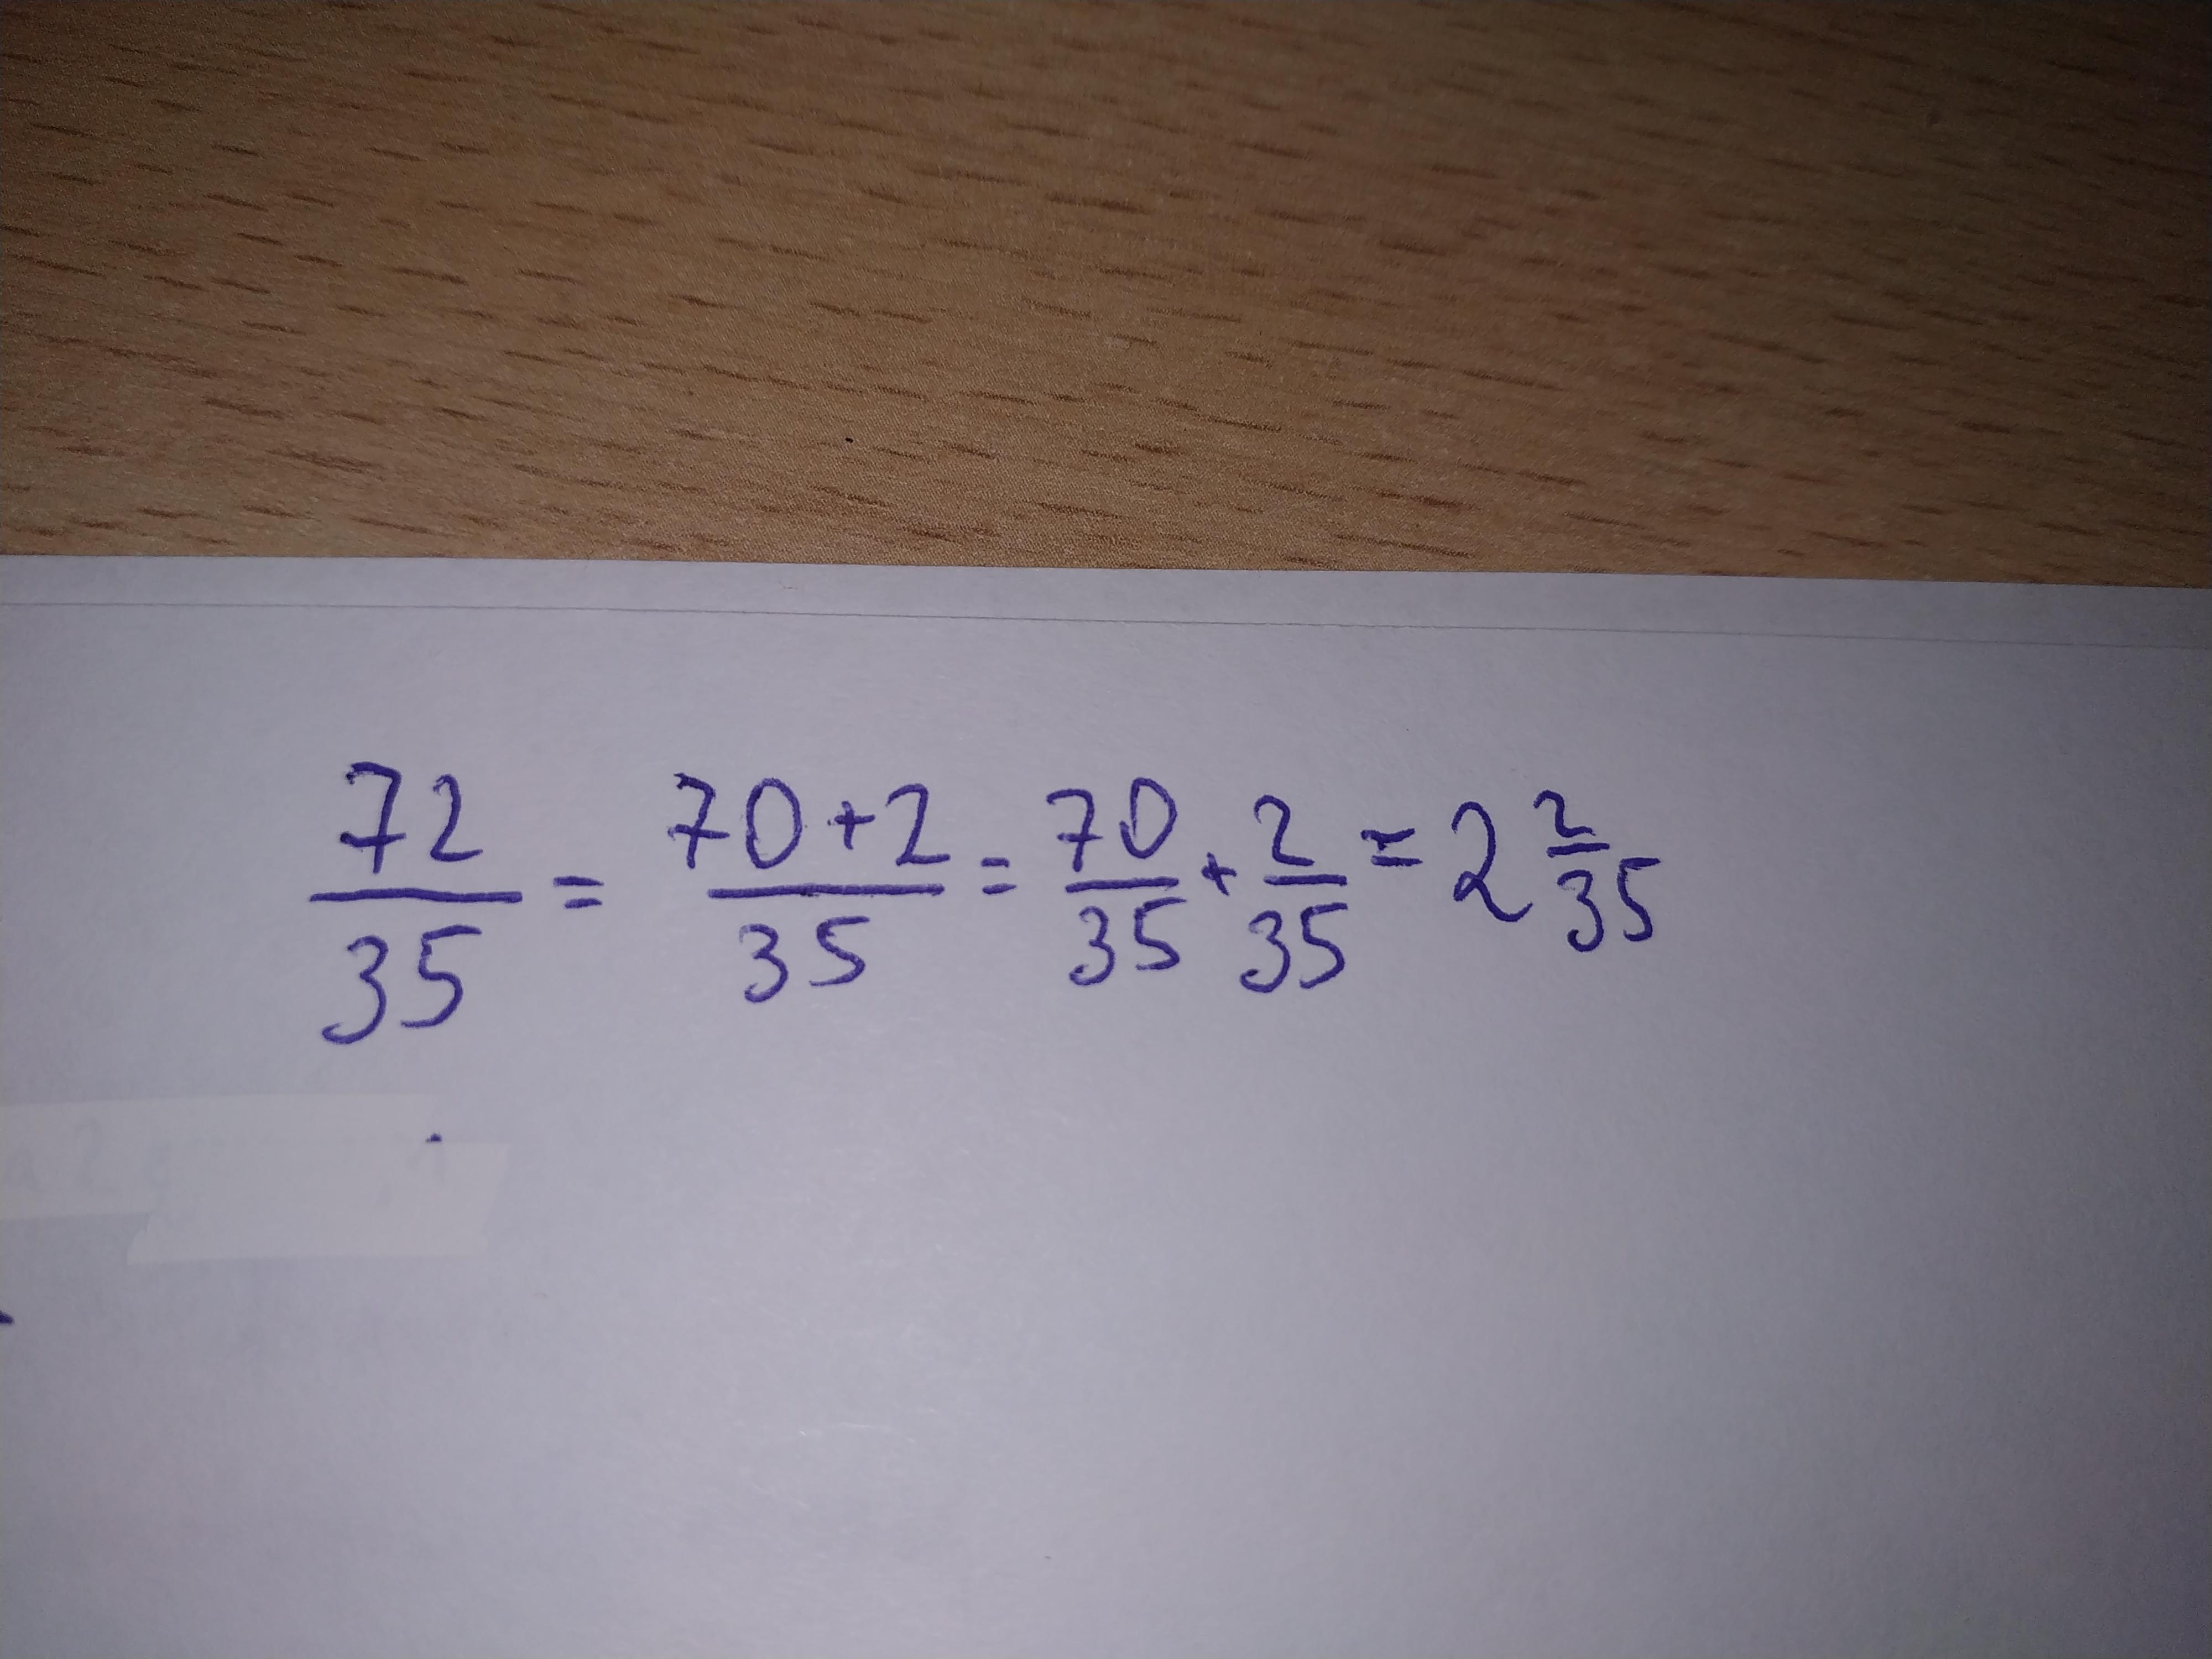 72/35 = 70+2/35 = 70/35 + 2/35 = 2 2/35